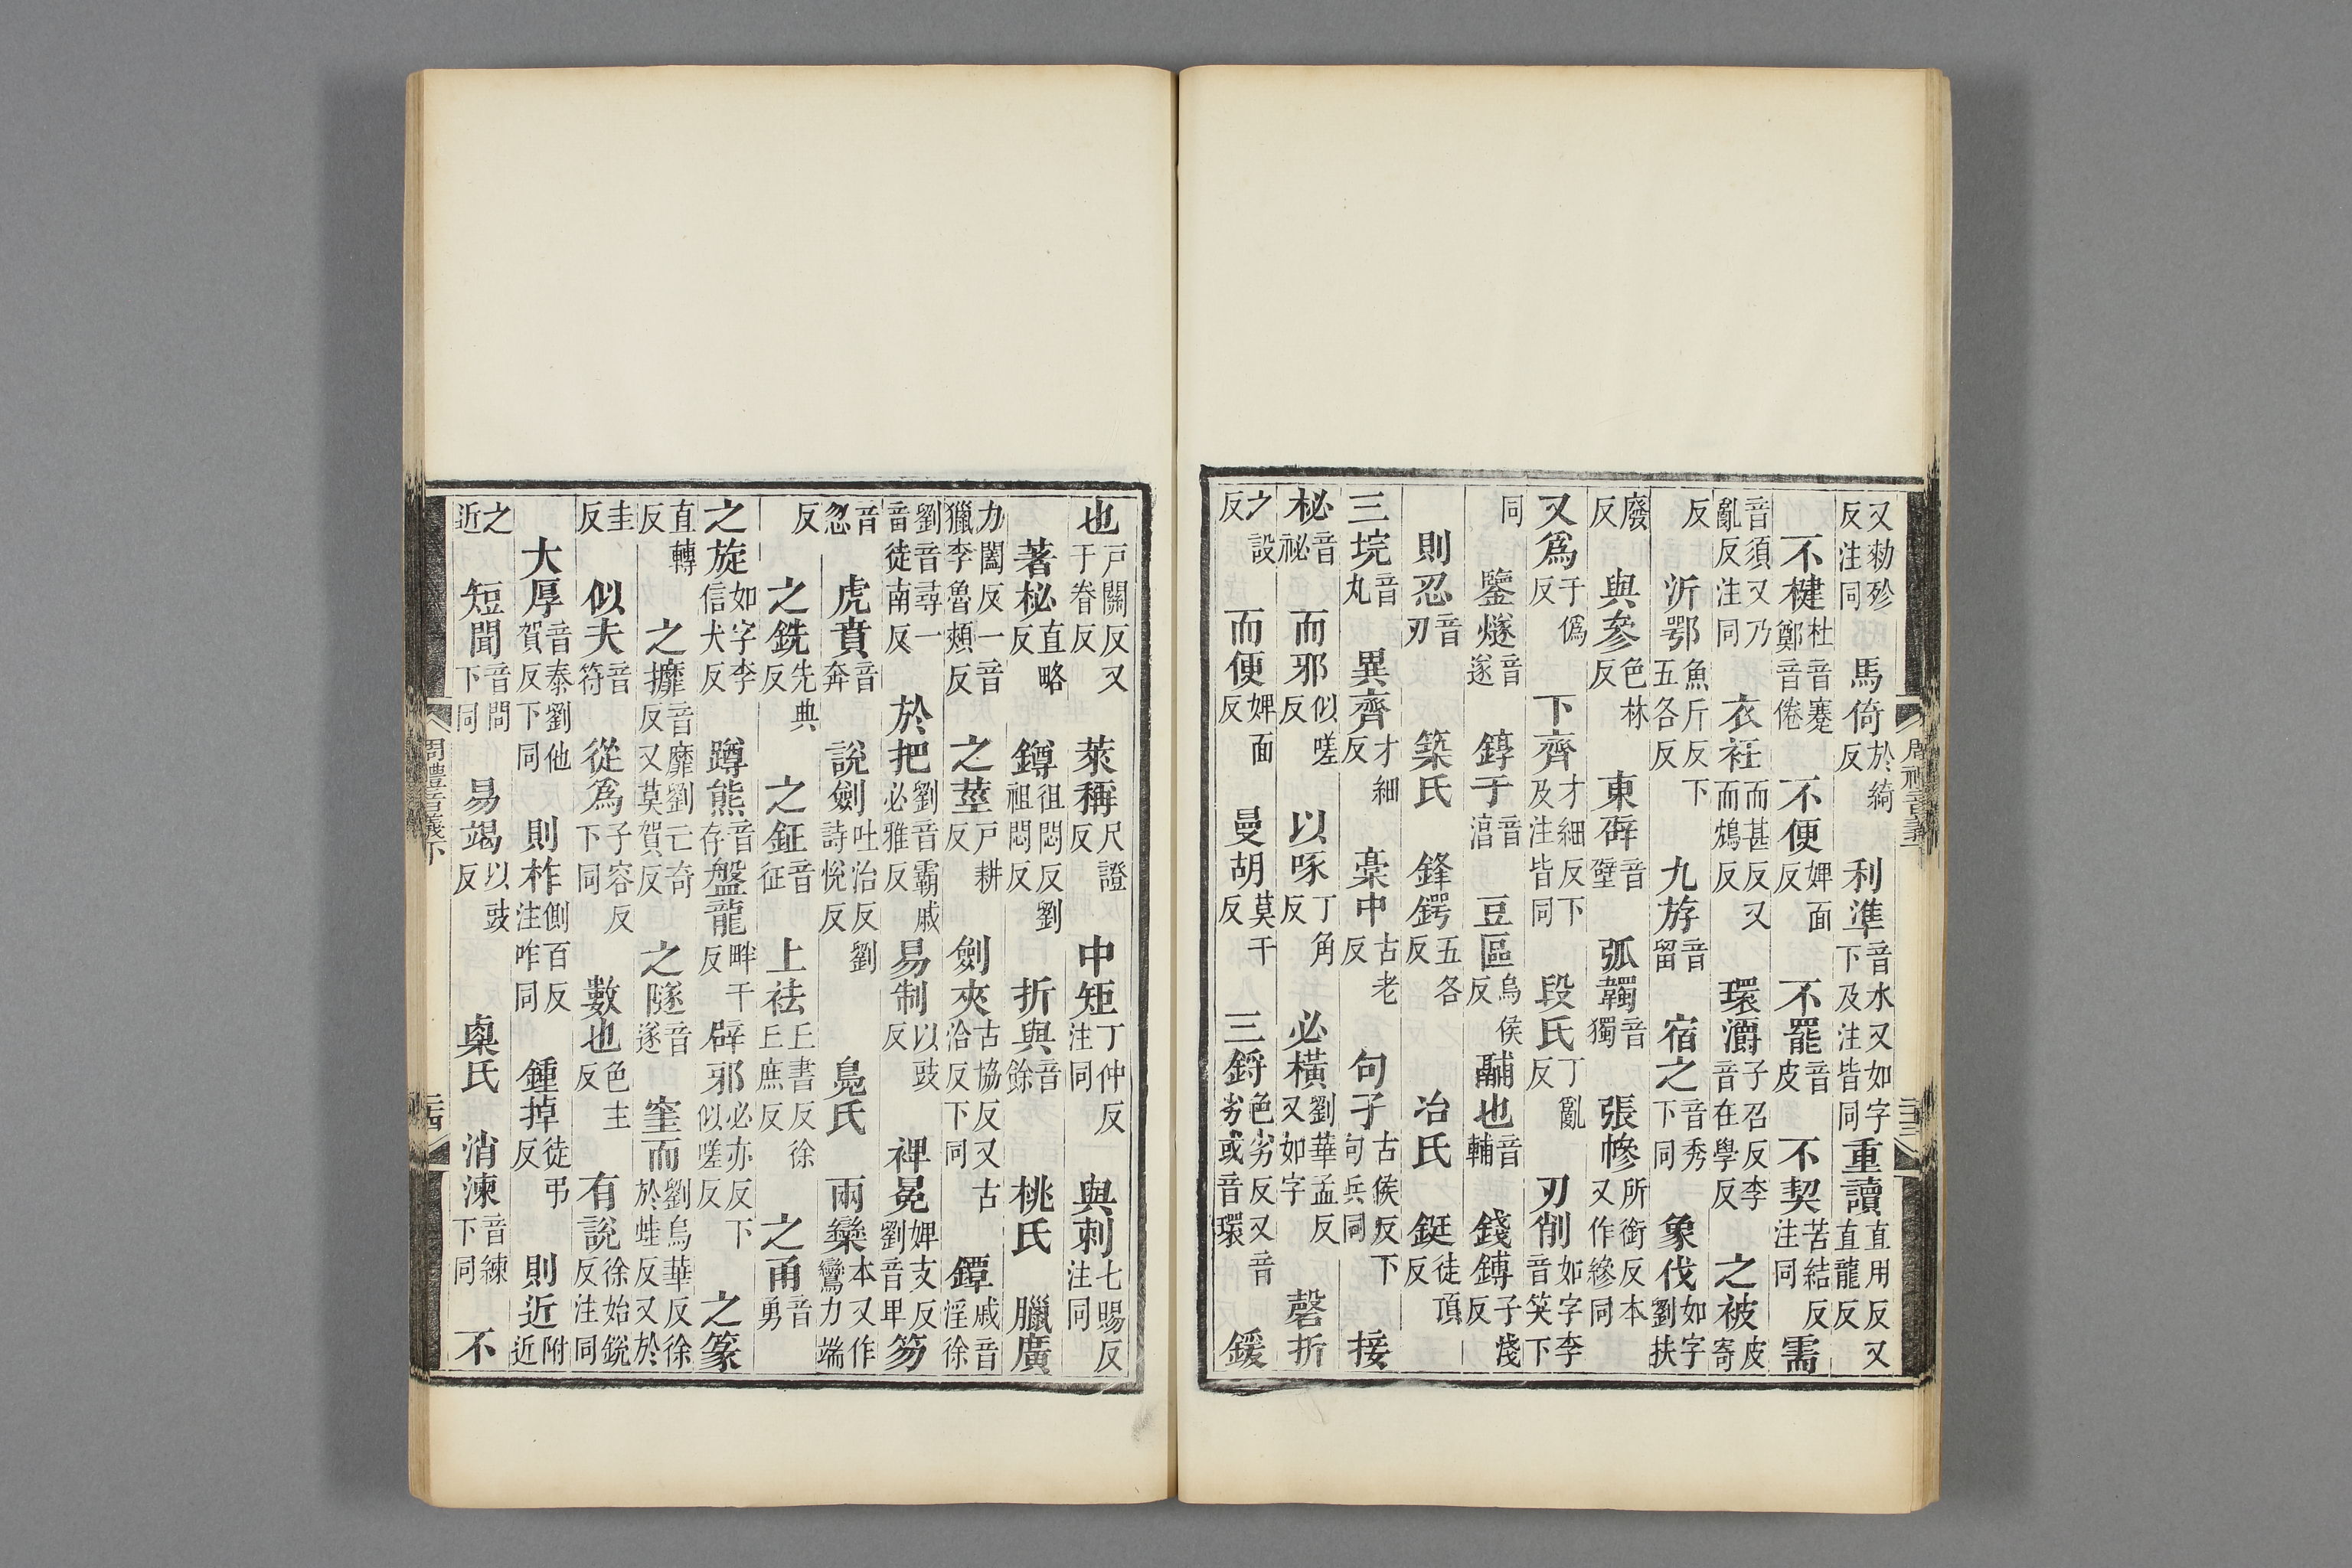 又勑殄反注同 馬倚於綺反 利準音水又如字下及注皆同 重讀直用反又直龍反
不楗杜音蹇鄭音倦 不便婢面反 不罷音皮 不契苦結反注同 需
音須又乃亂反注同 衣衽而甚反又而鴆反 環灂子召反李音在學反 之被皮寄
反 沂鄂魚斤反下五各反 九斿音留 宿之音秀下同 象伐如字劉扶
廢反 與參色林反 東辟音壁 弧韣音獨 張幓所銜反本又作縿同
又爲于僞反 下齊才細反下及注皆同 段氏丁亂反 刃削如字李音笑下
同 鑒燧音遂 錞于音湻 豆區烏侯反 鬴也音輔 錢鎛子淺反
則忍音刃 築氏 鋒鍔五各反 冶氏 鋌徒頂反
三垸音丸 異齊才細反 槀中古老反 句孑古侯反下句兵同 接
柲音祕 而邪似嗟反 以啄丁角反 必橫劉華孟反又如字 磬折
之設反 而便婢面反 曼胡莫干反 三鋝色劣反又音劣或音環 鍰
也戶關反又于眷反 萊稱尺證反 中矩丁仲反注同 與刺七賜反注同
著柲直略反 鐏徂悶反劉祖悶反 折與音餘 桃氏 臘廣
力闔反一音獵李魯頰反 之莖戶耕反 劍夾古協反又古洽反下同 鐔戚音淫徐
劉音尋一音徒南反 於把劉音霸戚必雅反 易制以豉反 裨冕婢支反劉音卑 笏
音忽 虎賁音奔 說劍吐活反劉詩悅反 鳧氏 兩欒本又作鸞力端
反 之銑先典反 之鉦音征 上袪丘書反徐丘庶反 之甬音勇
之旋如字李信犬反 蹲熊音存 盤龍畔干反 辟邪必亦反下似嗟反 之篆
直轉反 之攠音靡劉亡奇反又莫賀反 之隧音遂 窐而劉烏華反徐於蛙反又於
圭反 似夫音符 從爲子容反下同 數也色主反 有說徐始銳反注同
大厚音泰劉他賀反下同 則柞側百反注咋同 鍾掉徒弔反 則近附近
之近 短聞音問下同 易竭以豉反 㮚氏 消湅音練下同 不
周禮音義下